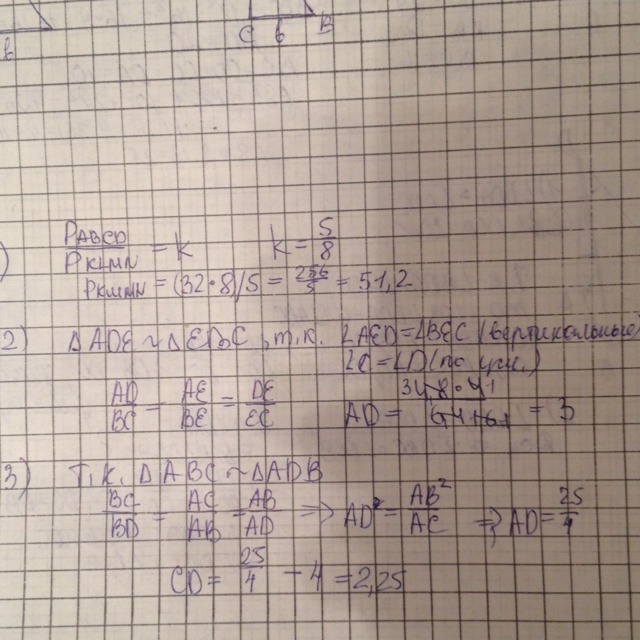 в
C в B
) P_ABCD / P_KLMN = K K = 5/8
P_KLMN = (32·8)/5 = 256/5 = 51,2
2) △ADE ~ △EBC, т.к. ∠AED = ∠BEC (вертикальные)
∠C = ∠D (по усл.)
AD/BC = AE/BE = DE/EC AD = = 3
3) Т.к. △ABC ~ △ADB
BC/BD = AC/AB = AB/AD ⇒ AD² = AB²/AC ⇒ AD = 25/4
CD = 25/4 − 4 = 2,25